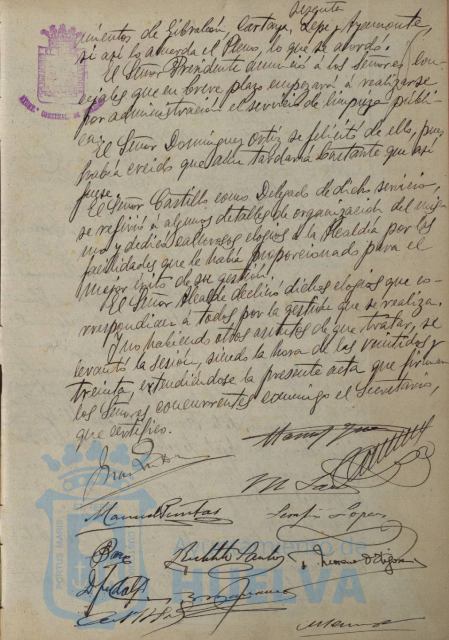 mientos de Gibraleón Cartaya, Lepe y Ayamonte,
si así lo acuerda el Pleno, lo que se acordó.
El Señor Presidente anunció á los Señores Con-
cejales que en breve plazo empezará á realizarse
por administración el servicio de limpieza públi-
ca.
El Señor Domínguez Ortiz se felicitó de ello, pues
había creido que aun tardaría bastante que así
fuese.
El Señor Castillo, como Delegado de dicho servicio,
se refirió á algunos detalles de organización del mis-
mo y dedicó calurosos elogios á la Alcaldía por las
facilidades que le había proporcionado para el
mejor éxito de su gestión.
El Señor Alcalde declinó dichos elogios que co-
rrespondían á todos por la gestión que se realiza.
Y no habiendo otros asuntos de que tratar, se
levantó la sesión, siendo la hora de las veintidos y
treinta, extendiéndose la presente acta que firman
los Señores concurrentes conmigo el Secretario,
que certifico.
Manuel Puntas
Serafín López
Ayuntamiento de
HUELVA
PORTUS MARIS